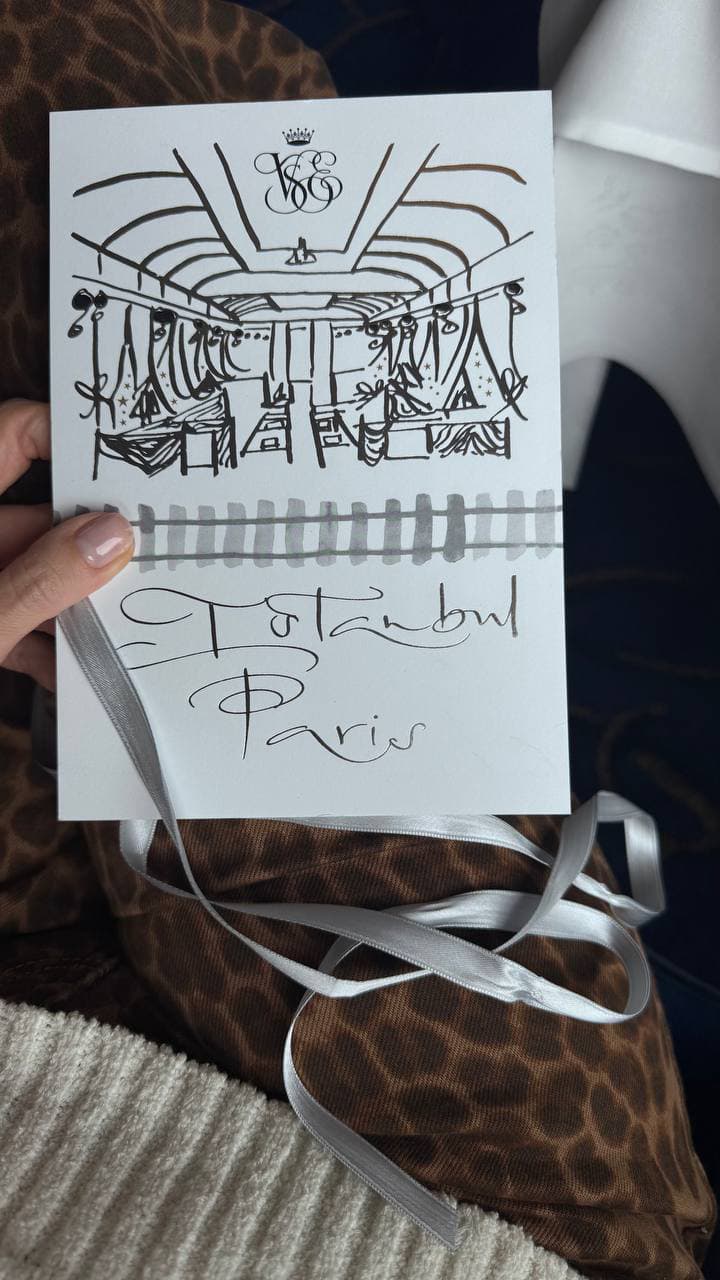 VSOE
Istanbul
Paris